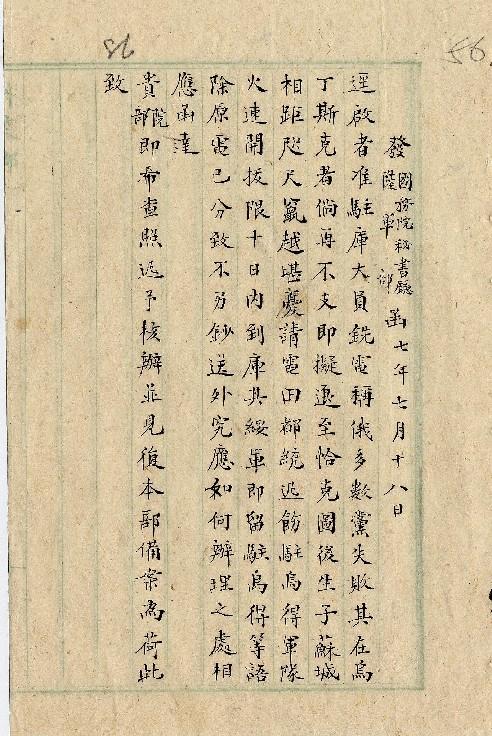 56
發國務院秘書廳陸軍部函七年七月十八日
逕啟者准駐庫大員銑電稱俄多數黨失敗其在烏
丁斯克者倘再不支即擬退至恰克圖後生子蘇城
相距咫尺竄越堪虞請電田都統迅飭駐烏得軍隊
火速開拔限十日內到庫其綏軍即留駐烏得等語
除原電已分致不另鈔送外究應如何辦理之處相
應函達
貴院部即希查照迅予核辦並見復本部備案為荷此
致